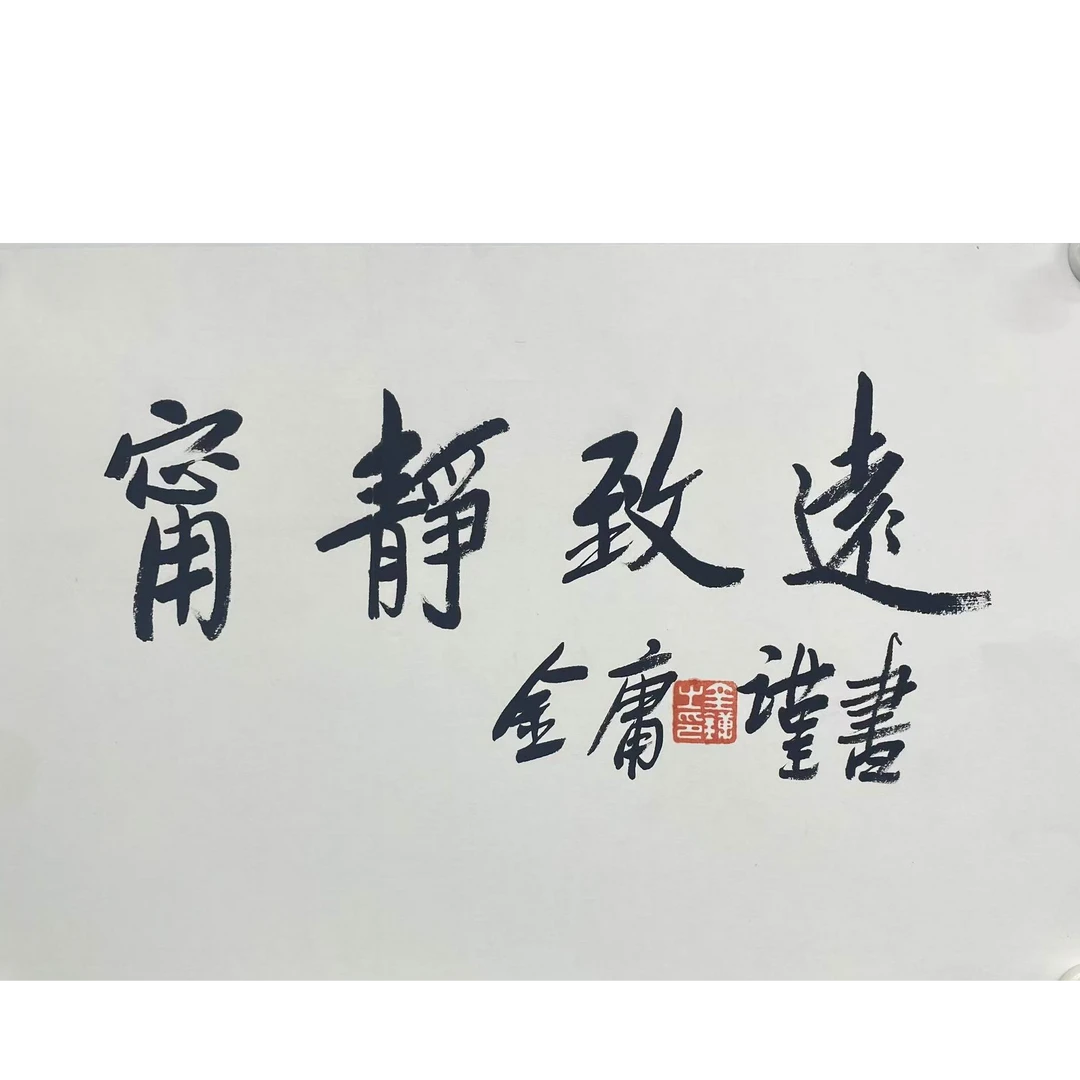 甯靜致遠
金庸謹書